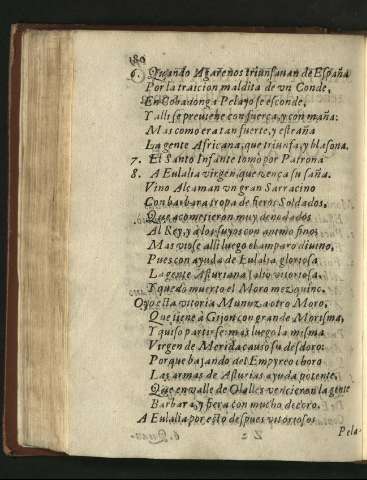 180
6. Quando Agarenos triunfauan de España
Por la traicion maldita de vn Conde,
En Cobadonga Pelayo se esconde,
Y alli se preuiene con fuerça, y con maña:
Mas como era tan fuerte, y estraña
La gente Africana, que triunfa, y blasona.
7. El Santo Infante tomò por Patrona
8. A Eulalia virgen, que vença su saña.
Vino Alçaman vn gran Sarracino
Con barbara tropa de fieros Soldados,
Que acometieron muy denodados
Al Rey, y a los suyos con animo fino;
Mas viose alli luego el amparo diuino,
Pues con ayuda de Eulalia gloriosa
La gente Asturiana saliò vitoriosa,
Y quedò muerto el Moro mezquino.
Oyo esta vitoria Munuza otro Moro,
Que tiene à Gijon con grande Morisma,
Y quiso partirse: mas luego la misma
Virgen de Merida causò su desdoro:
Porque bajando del Empyreo choro
Las armas de Asturias ayuda potente,
Que en valle de Olalles vencieron la gente
Barbara, y fiera con mucho decoro.
A Eulalia por esto despues vitoriosos
Pela-